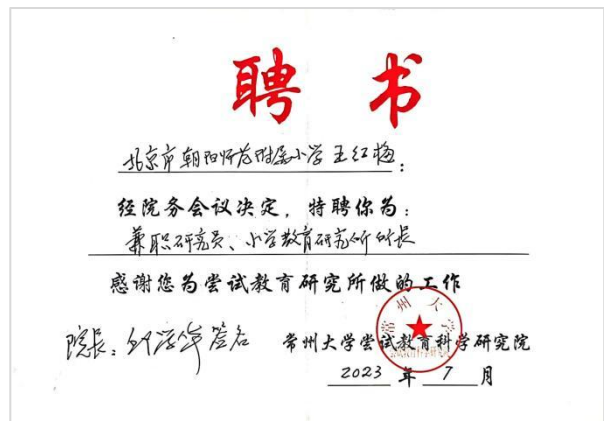 聘 书
北京市朝阳师范附属小学 王红梅:
经院务会议决定,特聘你为:
兼职研究员、小学教育研究所 所长
感谢您为尝试教育研究所做的工作
院长: 签名
常州大学尝试教育科学研究院
2023 年 7 月
常州大学